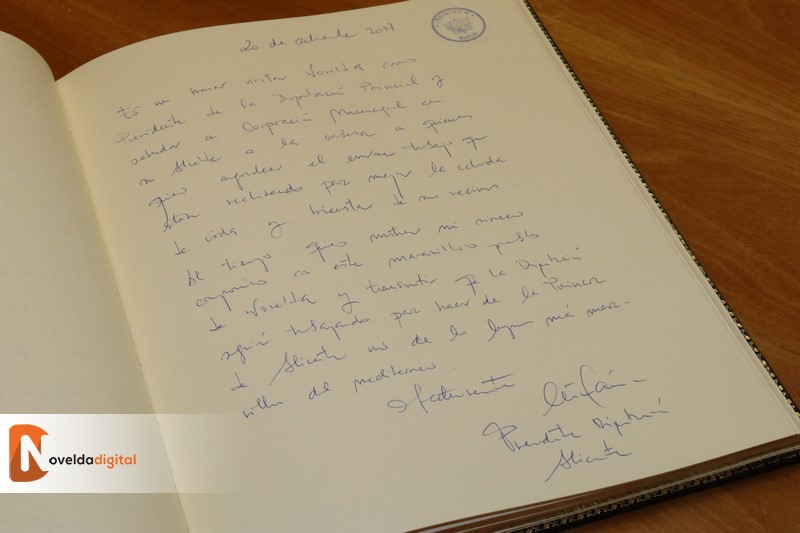 20 de setiembre 2017.
Es un honor visitar Novelda como
Presidente de la Diputación Provincial y
saludar a Corporación Municipal con
su Alcalde a la cabeza a quienes
quiero agradecer el enorme trabajo que
están realizando por mejorar la calidad
de vida y bienestar de sus vecinos.
Al tiempo quiero mostrar mi sincero
compromiso con este maravilloso pueblo
de Novelda y transmitir que la Diputación
seguirá trabajando por hacer de la Provincia
de Alicante uno de los lugares más mara-
villosos del mediterraneo.
Afectuosamente
Presidente Diputación
Alicante
Noveldadigital